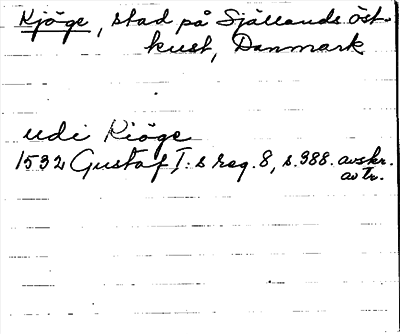 Kjöge, stad på Själlands öst-
kust, Danmark
udi Kiöge
1532 Gustaf I:s reg. 8, s. 388. avskr.
av tr.